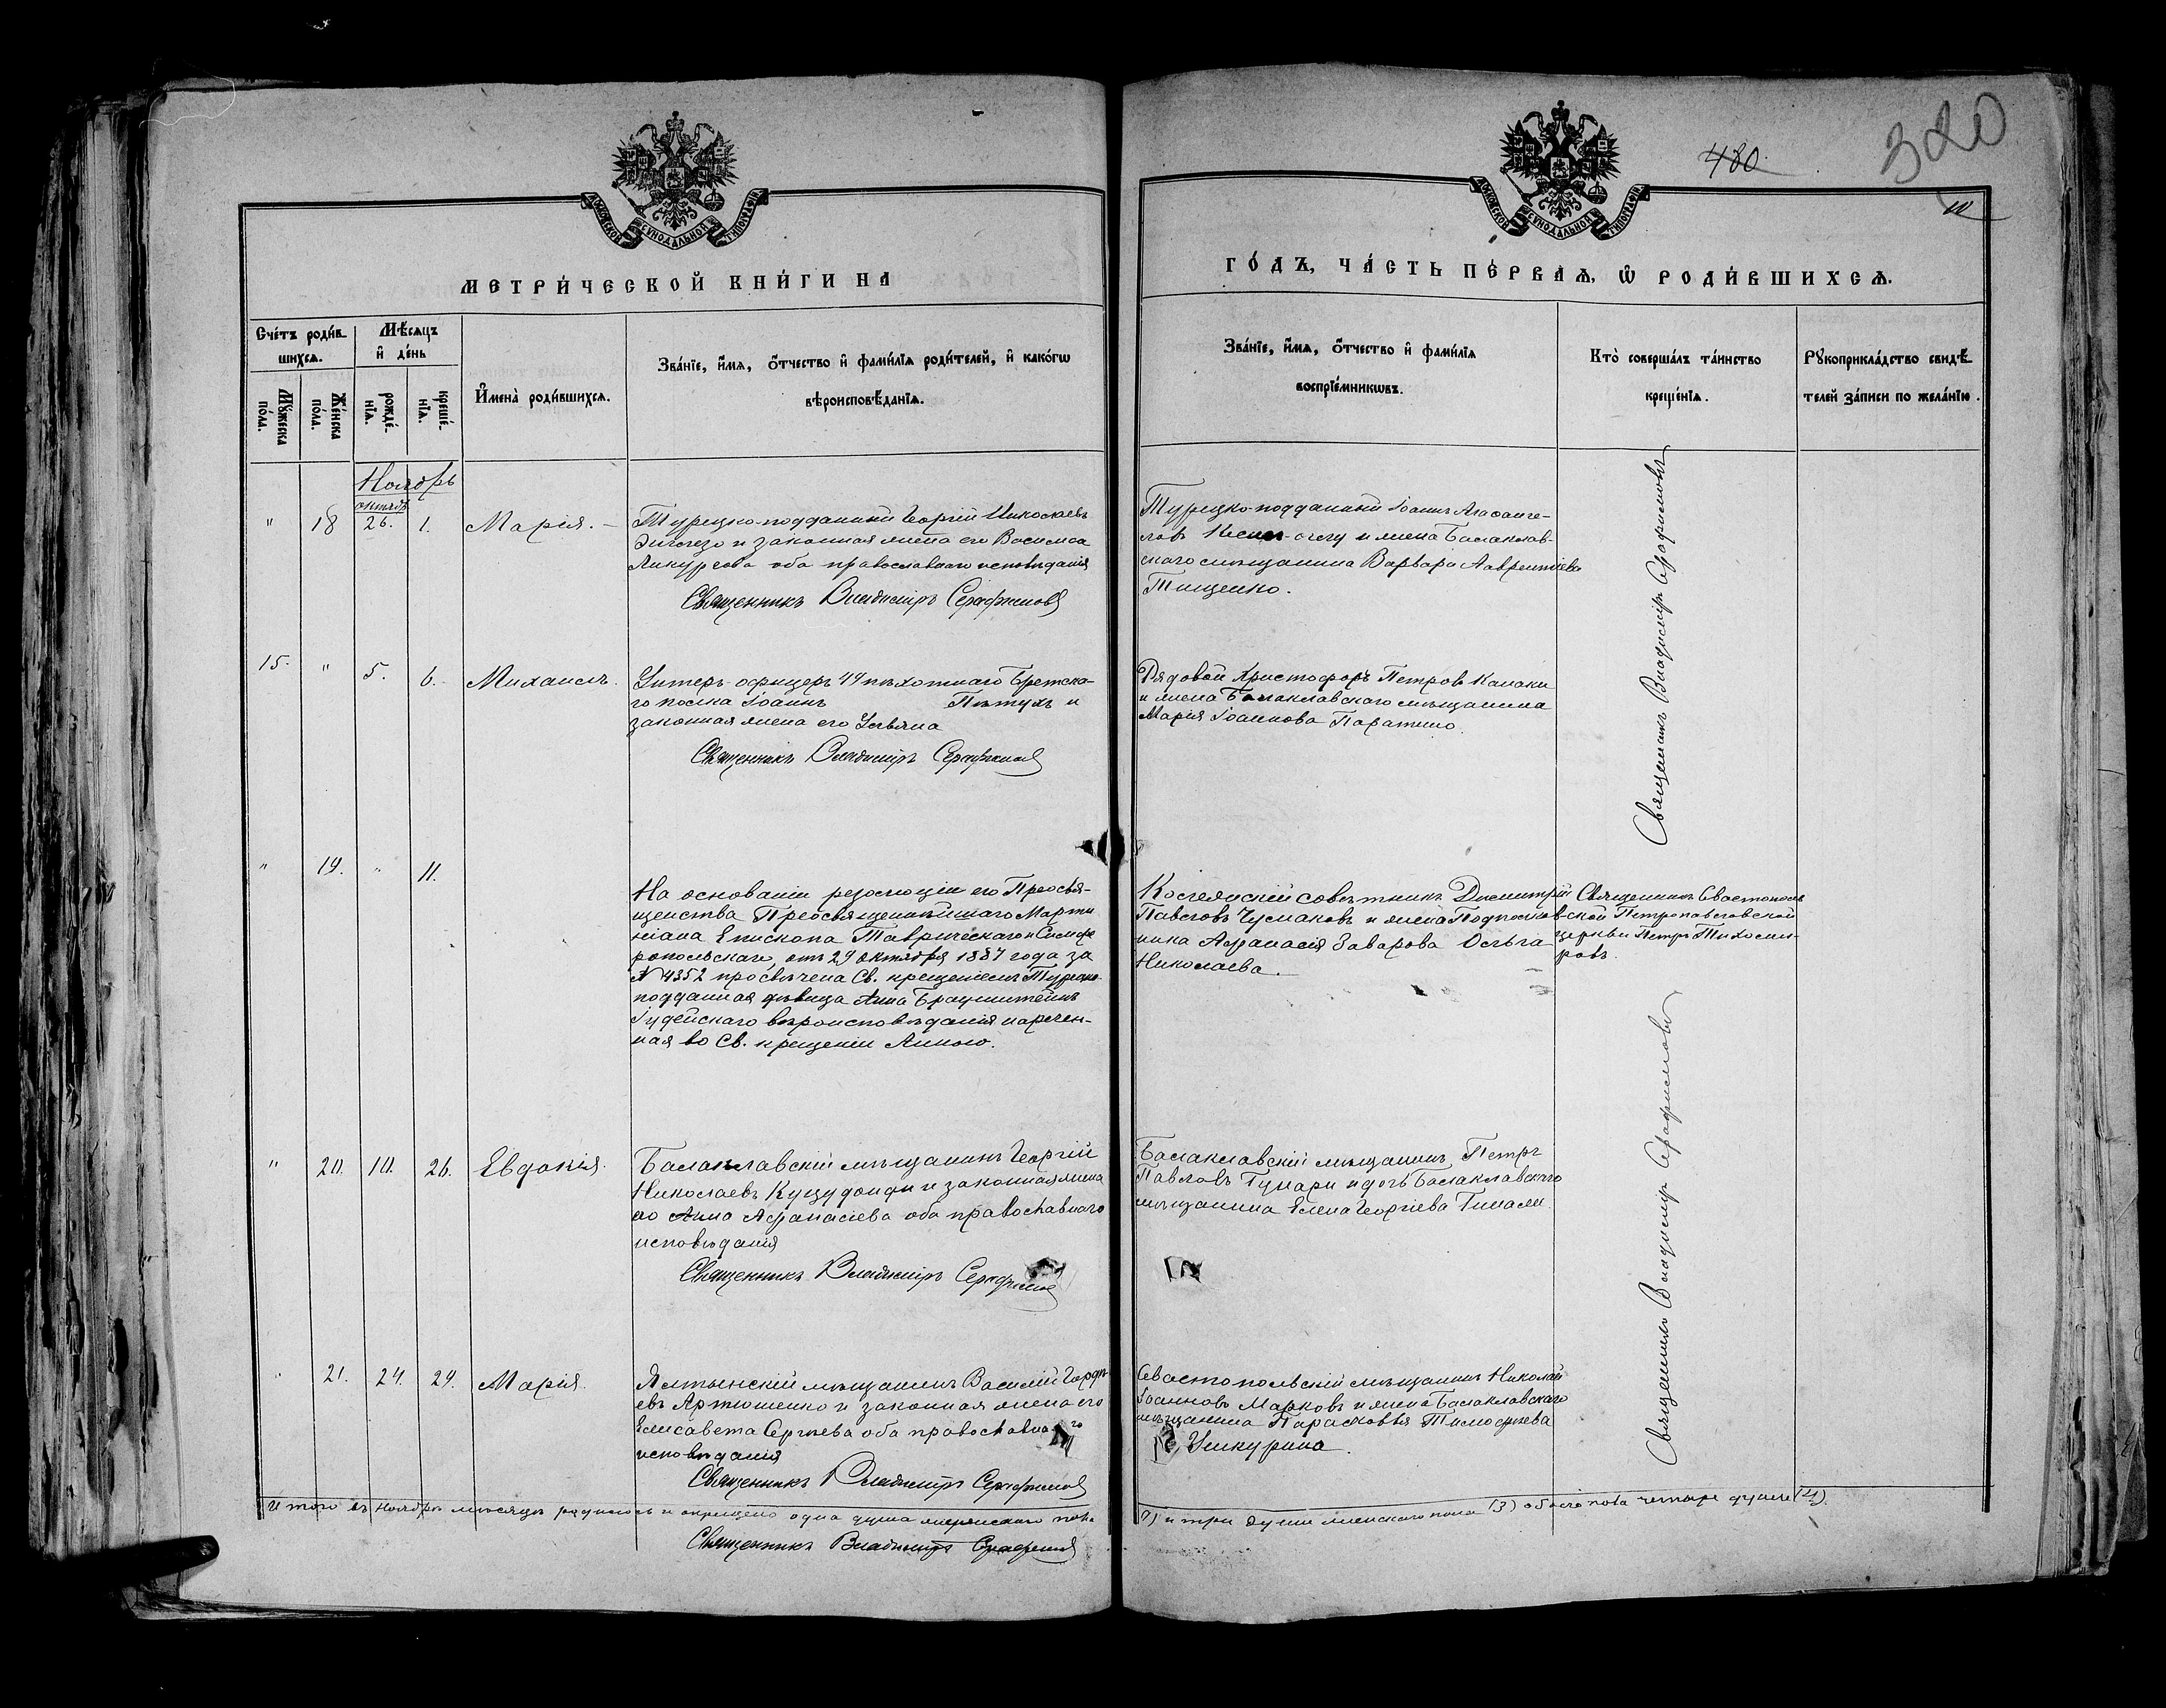 480.
320
МОСКОВСКОЙ СѴНОДАЛЬНОЙ ТИПОГРАФІИ
МОСКОВСКОЙ СѴНОДАЛЬНОЙ ТИПОГРАФІИ
МЕТРИ́ЧЕСКОЙ КНИ́ГИ НА
ГО́ДЪ, ЧА́СТЬ ПЕ́РВАѦ, Ѿ РОДИ́ВШИХСѦ.
Сче́тъ роди́в-
шихсѧ.
Мꙋ́жеска по́ла.
Же́нска по́ла.
Мѣ́сѧцъ
и҆ де́нь
рожде́-
нїѧ.
креще́-
нїѧ.
И҆мена̀ роди́вшихсѧ.
Зва́нїе, и҆́мѧ, ѻ҆́тчество и҆ фами́лїѧ роди́телей, и҆ како́гѡ
вѣроисповѣ́данїѧ.
Зва́нїе, и҆́мѧ, ѻ҆́тчество и҆ фами́лїѧ
воспрїе́мникѡвъ.
Кто̀ соверша́лъ та́инство
креще́нїѧ.
Рꙋкоприкла́дство свидѣ́-
телей за́писи по жела́нїю.
Ноябрь
октяб.
" 18 26. 1. Марія.
Турецко-подданный Георгій Николаевъ
и законная жена его Василиса
Ликургова оба православнаго исповѣданія
Священникъ Владиміръ Серафимовъ
Турецко-подданный Іоаннъ Агаѳанге-
ловъ и жена Балаклав-
скаго мѣщанина Варвара Лаврентіева
Тищенко.
Священникъ Владиміръ Серафимовъ
15. " 5. 6. Михаилъ.
Унтеръ-офицеръ 49 пѣхотнаго Брестска-
го полка Іоаннъ Пѣтухъ и
законная жена его Ульяна
Священникъ Владиміръ Серафимовъ
Рядовой Христофоръ Петровъ Калаки
и жена Балаклавскаго мѣщанина
Марія Іоаннова Паратино.
" 19. " 11.
На основаніи резолюціи его Преосвя-
щенства Преосвященнѣйшаго Марти
ніана Епископа Таврическаго и Симфе
ропольскаго, отъ 29 октября 1887 года за
№ 4352 просвѣчена Св. крещеніемъ Турецко-
подданная дѣвица Анна Браунштейнъ
Іудейскаго вѣроисповѣданія наречен-
ная во Св. крещеніи Анною.
Коллежскій совѣтникъ Димитрій
Павловъ Чумаковъ и жена Подполков-
ника Афанасія Заварова Ольга
Николаева.
Священникъ Севастополь
ской Петропавловской
церкви Петръ Тихоми-
ровъ.
" 20. 10. 26. Евдокія.
Балаклавскій мѣщанинъ Георгій
Николаевъ и законная жена
его Анна Афанасіева оба православнаго
исповѣданія
Священникъ Владиміръ Серафимовъ
Балаклавскій мѣщанинъ Петръ
Павловъ и дочь Балаклавскаго
мѣщанина Елена Георгіева
Священникъ Владиміръ Серафимовъ
21. 24. 29. Марія.
Ялтинскій мѣщанинъ Василій Гордѣ-
евъ Артюшенко и законная жена его
Елисавета Сергѣева оба православнаго
исповѣданія
Священникъ Владиміръ Серафимовъ
Севастопольскій мѣщанинъ Николай
Іоанновъ Марковъ и жена Балаклавскаго
мѣщанина Параскевія Тимофѣева
Шкурина.
Итого въ ноябрѣ мѣсяцѣ родилось и окрещено одна душа мужескаго пола
1) и три души женскаго пола (3) обоего пола четыре души (4).
Священникъ Владиміръ Серафимовъ